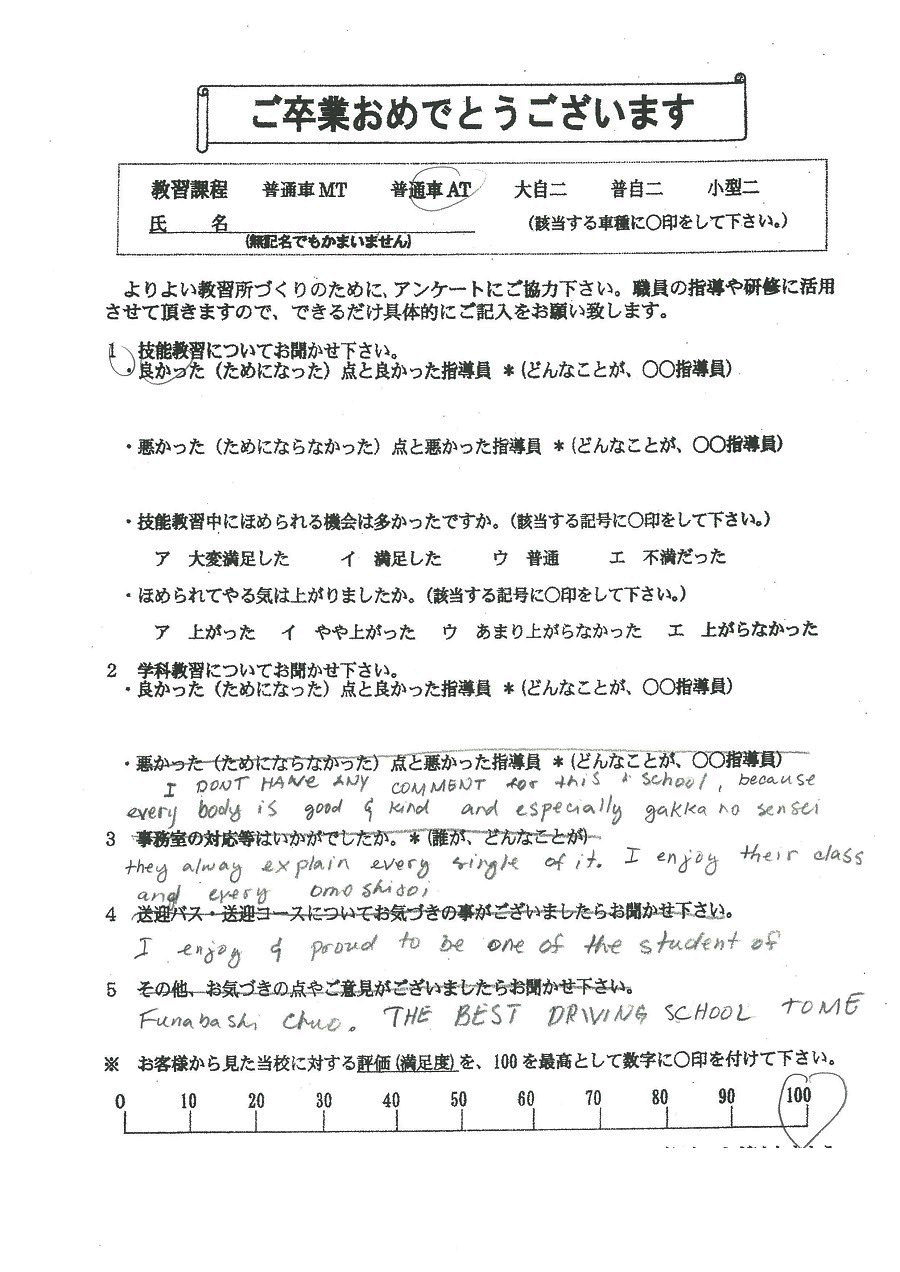 ご卒業おめでとうございます
教習課程 普通車MT 普通車AT 大自二 普自二 小型二
氏 名 (該当する車種に〇印をして下さい。)
(無記名でもかまいません)
よりよい教習所づくりのために、アンケートにご協力下さい。職員の指導や研修に活用
させて頂きますので、できるだけ具体的にご記入をお願い致します。
1 技能教習についてお聞かせ下さい。
・良かった（ためになった）点と良かった指導員 *(どんなことが、〇〇指導員)
・悪かった（ためにならなかった）点と悪かった指導員 *(どんなことが、〇〇指導員)
・技能教習中にほめられる機会は多かったですか。(該当する記号に〇印をして下さい。)
ア 大変満足した イ 満足した ウ 普通 エ 不満だった
・ほめられてやる気は上がりましたか。(該当する記号に〇印をして下さい。)
ア 上がった イ やや上がった ウ あまり上がらなかった エ 上がらなかった
2 学科教習についてお聞かせ下さい。
・良かった（ためになった）点と良かった指導員 *(どんなことが、〇〇指導員)
・悪かった（ためにならなかった）点と悪かった指導員 *(どんなことが、〇〇指導員)
I DONT HAVE ANY COMMENT for this school, because
every body is good & kind and especially gakka no sensei
3 事務室の対応等はいかがでしたか。*(誰が、どんなことが)
they alway explain every single of it. I enjoy their class
and every omoshiroi
4 送迎バス・送迎コースについてお気づきの事がございましたらお聞かせ下さい。
I enjoy & proud to be one of the student of
5 その他、お気づきの点やご意見がございましたらお聞かせ下さい。
Funabashi Chuo. THE BEST DRIVING SCHOOL TO ME
※ お客様から見た当校に対する評価(満足度)を、100を最高として数字に〇印を付けて下さい。
0 10 20 30 40 50 60 70 80 90 100